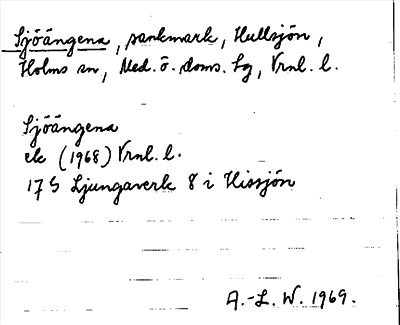 Sjöängena, sankmark, Hullsjön,
Holms sn, Med. ö. doms. lg, Vrnl. l.
Sjöängena
ek (1968) Vrnl. l.
17 G Ljungaverk 8 i Hissjön
A.-L. W. 1969.